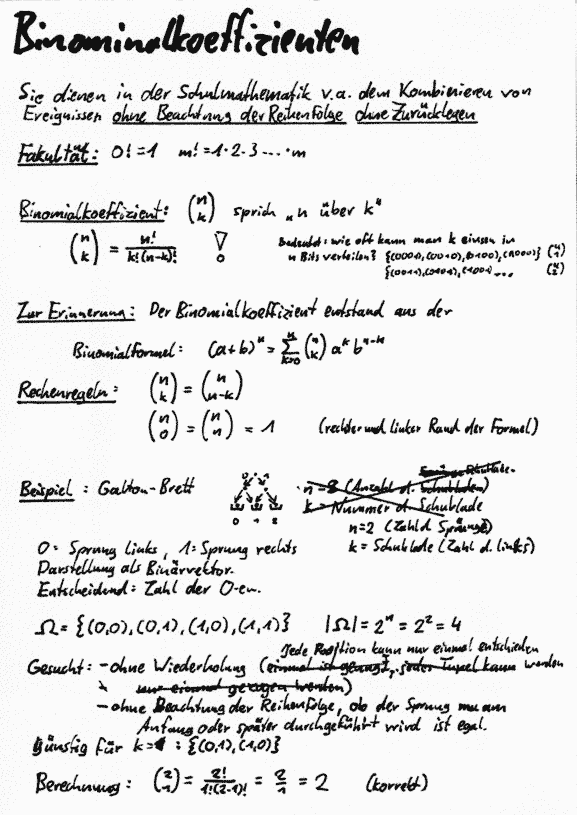 Binominalkoeffizienten
Sie dienen in der Schulmathematik v.a. dem Kombinieren von
Ereignissen ohne Beachtung der Reihenfolge ohne Zurücklegen
Fakultät: 0! = 1 m! = 1·2·3·...·m
Binomialkoeffizient: (n k) sprich „n über k"
(n k) = n!/k!(n-k)! !
Bedeutet: wie oft kann man k einsen in
n Bits verteilen? {(0001),(0010),(0100),(1000)} (4 1)
{(0011),(0101),(1001).... (4 2)
Zur Erinnerung: Der Binomialkoeffizient entstand aus der
Binomialformel: (a+b)^n = Σ k=0 n (n k) a^k b^n-k
Rechenregeln: (n k) = (n n-k)
(n 0) = (n n) = 1 (rechter und linker Rand der Formel)
Beispiel: Galton-Brett
0 1 2
n = (Anzahl d. Schubladen)
k = Nummer d. Schublade
n=2 (Zahl d. Sprünge)
k = Schublade (Zahl d. links)
0 = Sprung links, 1 = Sprung rechts
Darstellung als Binärvektor.
Entscheidend: Zahl der 0-en.
Ω = {(0,0),(0,1),(1,0),(1,1)} |Ω| = 2^n = 2^2 = 4
Jede Position kann nur einmal entschieden
Gesucht: - ohne Wiederholung (einmal ist genug, jeder kann werden
nur einmal gezogen werden)
- ohne Beachtung der Reihenfolge, ob der Sprung nu am
Anfang oder später durchgeführt wird ist egal.
Günstig für k=1: {(0,1),(1,0)}
Berechnung: (2 1) = 2!/1!(2-1)! = 2/1 = 2 (korrekt)